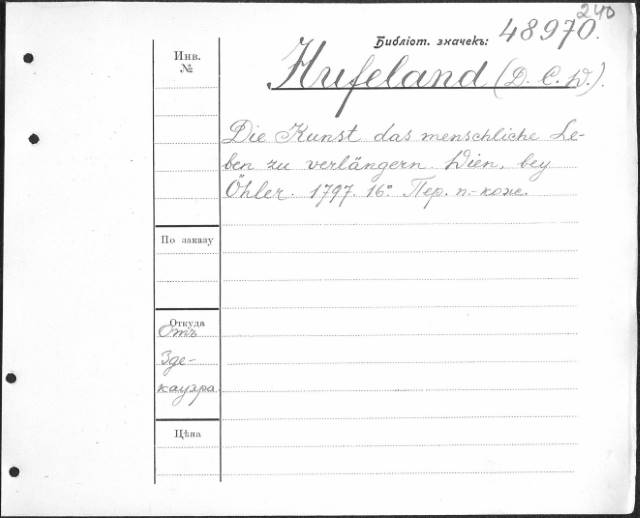 240
Библіот. значекъ: 48970.
Инв.
№
Hufeland (D. C. W.).
Die Kunst das menschliche Le-
ben zu verlängern. Wien, bey
Öhler. 1797. 16º. Пер. п.-коже.
По заказу
Откуда
Отъ
Зде-
кауэра.
Цѣна